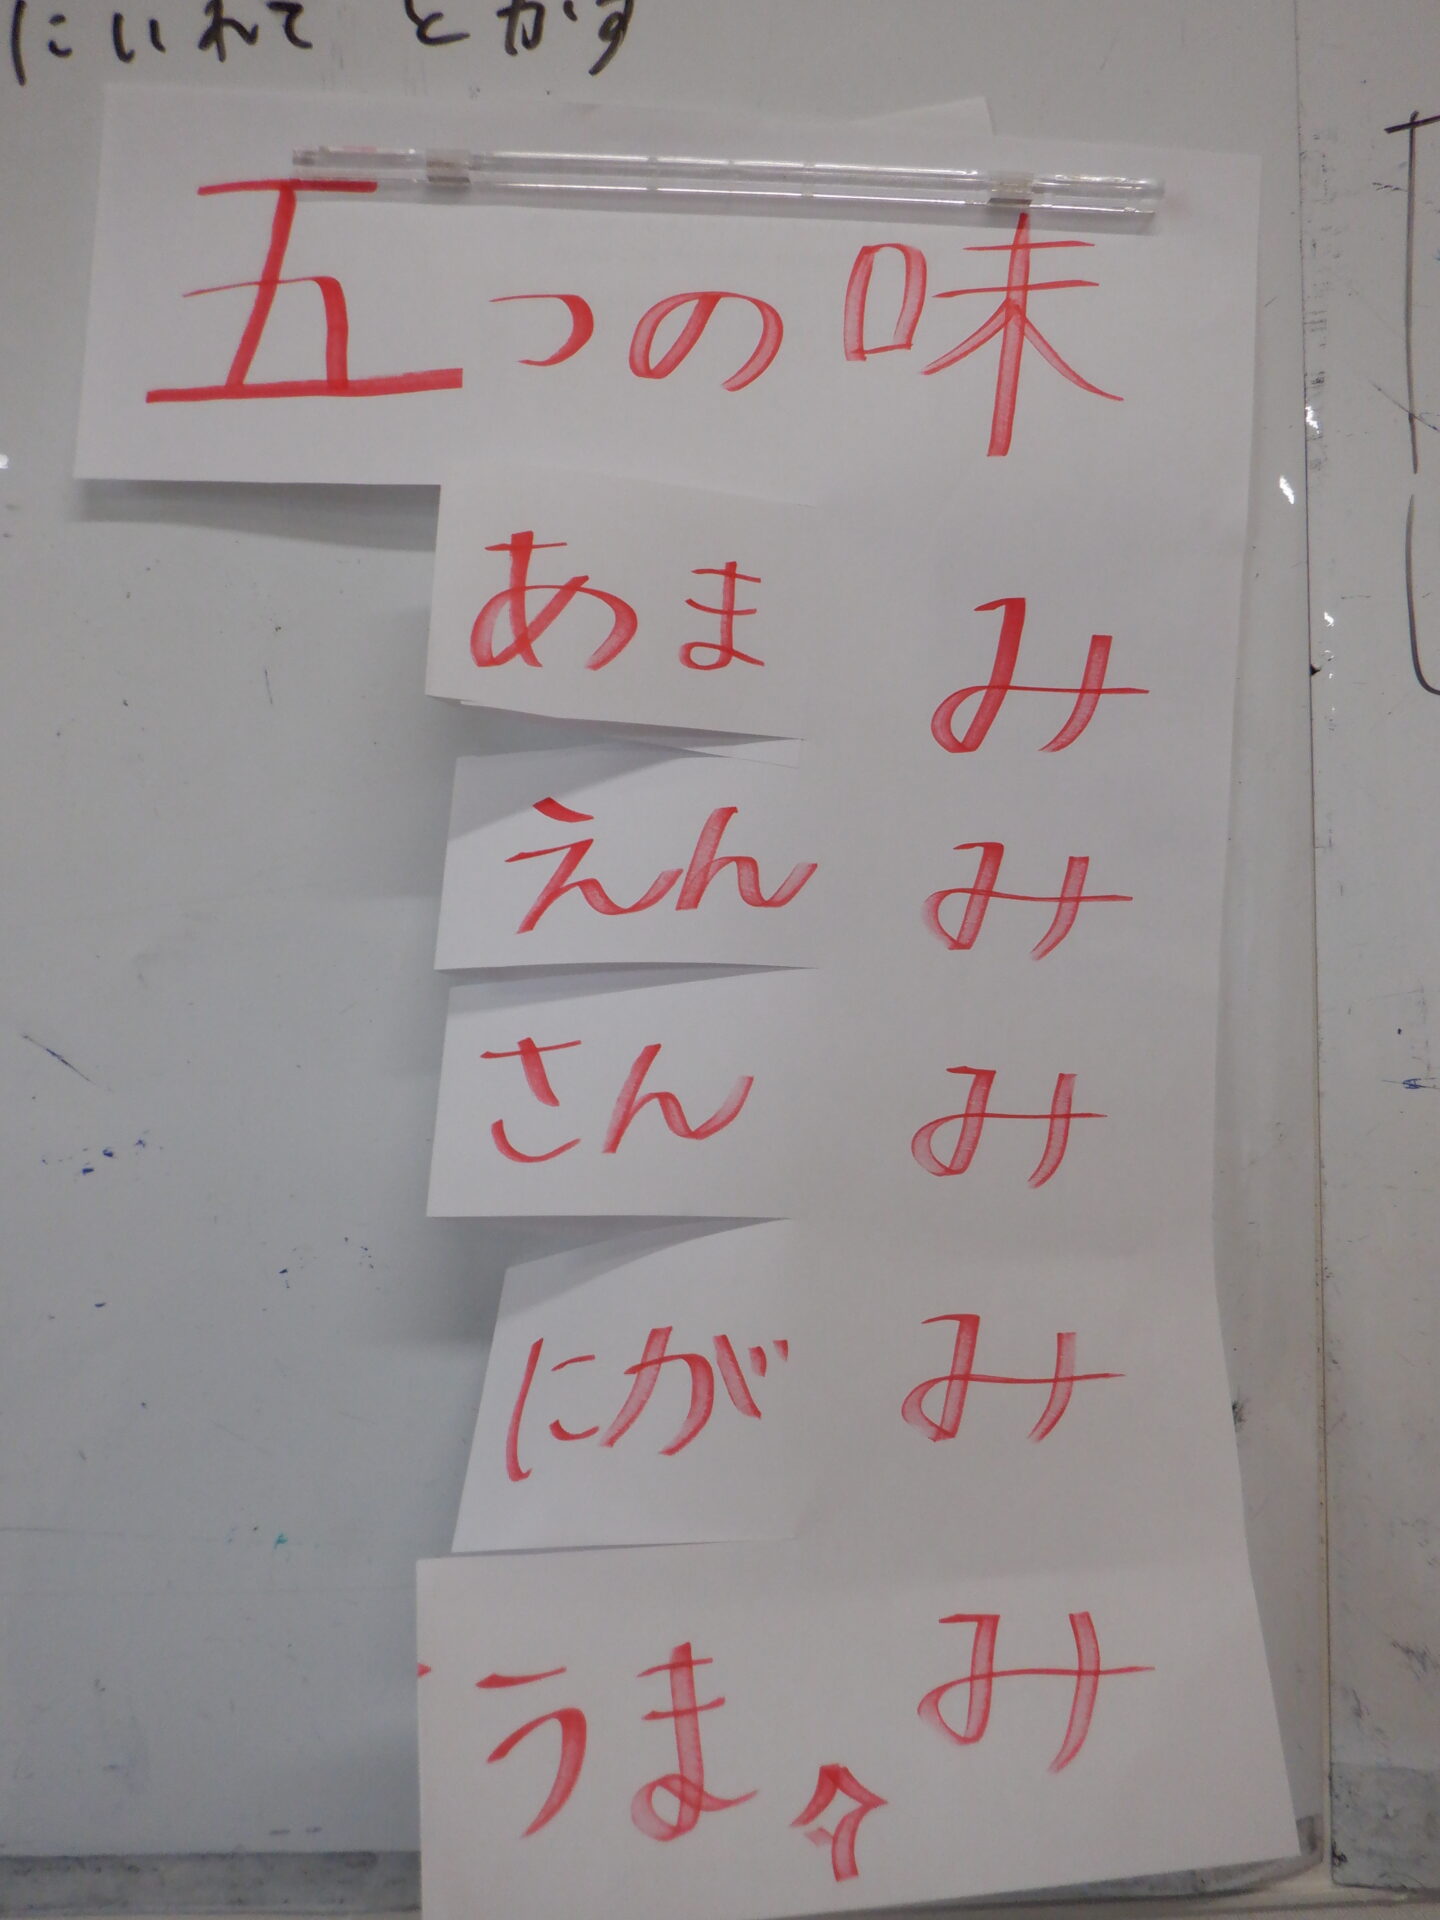 にいれて とかす
五つの味
あまみ
えんみ
さんみ
にがみ
うまみ